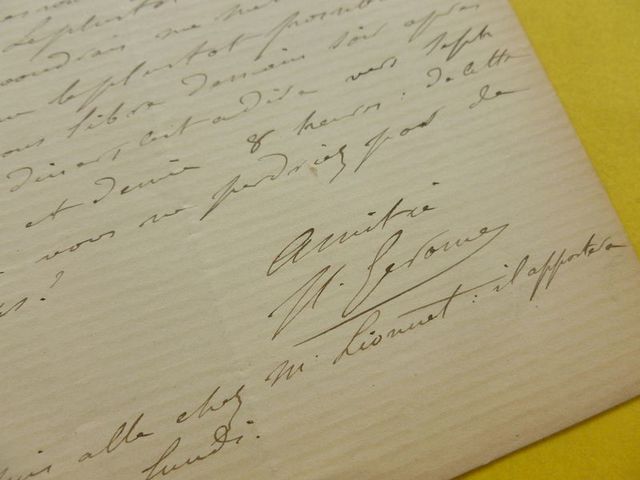 le plustot
voudrais me
le plustot possible
vous libre demain soir après
diner, c'est à dire vers sept h
et demie 8 heures : de cette
vous ne perdriez pas de
Amitié
Gerome
suis allé chez M. Lionnet : il apportera
lundi.